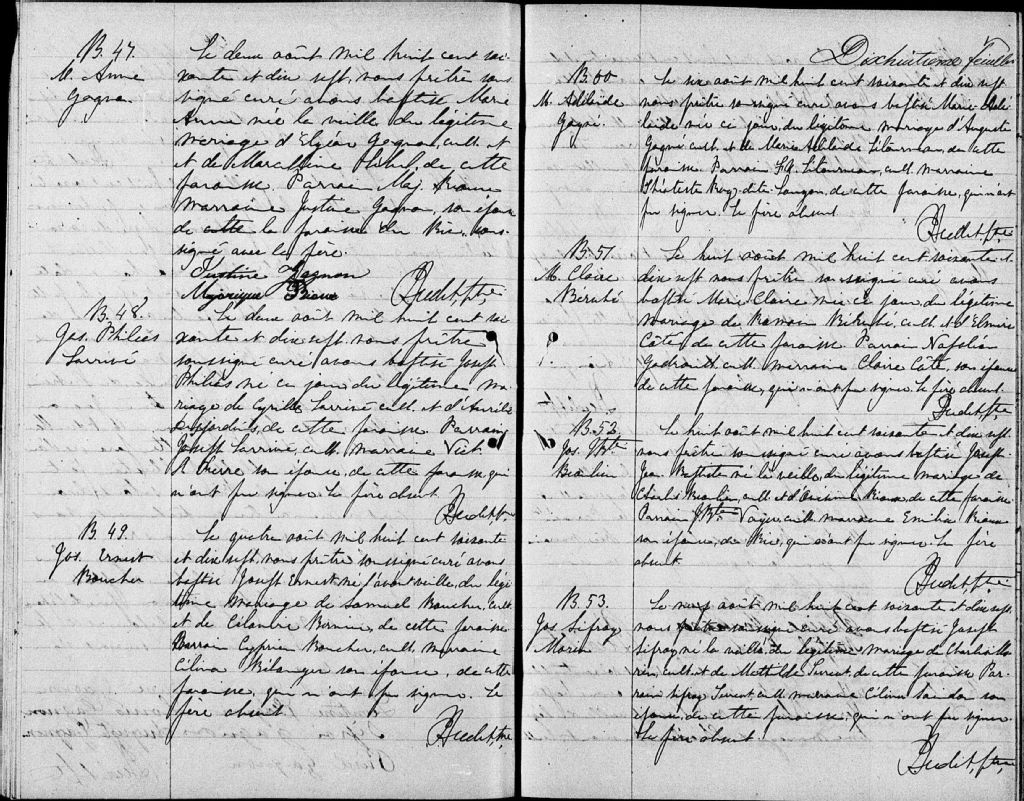 B. 47.
M. Anne
Gagnon
Le deux août mil huit cent soi-
xante et dix sept, nous prêtre sous
signé curé avons baptisé Marie
Anne née la veille du légitime
mariage d'Elzéar Gagnon, cult. et
et de Marcelline de cette
paroisse. Parrain Maj. Rioux
marraine Justine Gagnon, son épouse
de cette la paroisse du Bic, sous-
signé avec le père.
Justine Gagnon
Majorique Rioux
Audet, ptre
B. 48.
Jos. Philéas
Larrivé
Le deux août mil huit cent soi-
xante et dix sept, nous prêtre
soussigné curé avons baptisé Joseph
Philéas né ce jour du légitime ma-
riage de Cyrille Larrivé cult. et d'Aurélie
Desjardins, de cette paroisse. Parrain
Joseph Larrivé, cult. marraine
son épouse, de cette paroisse, qui
n'ont pu signer. Le père absent.
Audet, ptre
B. 49.
Jos. Ernest
Boucher
Le quatre août mil huit cent soixante
et dix sept, nous prêtre soussigné curé avons
baptisé Joseph Ernest né l'avant veille, du légi
time mariage de Samuel Boucher, cult.
et de de cette paroisse
Parrain Cyprien Boucher, cult. marraine
Célina Bélanger son épouse, de cette
paroisse, qui n'ont pu signer. Le
père absent.
Audet, ptre
Dixhuitième Feuillet
B. 50
M. Adélaïde
Gagné.
Le six août mil huit cent soixante et dix sept
nous prêtre soussigné curé avons baptisé Marie Adé
laïde née ce jour, du légitime mariage d'Auguste
Gagné cult. et de Marie Adélaïde Létourneau, de cette
paroisse. Parrain Létourneau, cult. marraine
Roy, de cette paroisse, qui n'ont
pu signer. Le père absent.
Audet, ptre
B. 51.
M. Claire
Bérubé
Le huit août mil huit cent soixante et
dix sept nous prêtre soussigné curé avons
baptisé Marie Claire née ce jour, du légitime
mariage de Romain Bérubé, cult. et d'Elmire
Côté, de cette paroisse. Parrain Napoléon
cult. marraine Claire Côté, son épouse
de cette paroisse, qui n'ont pu signer. Le père absent.
Audet, ptre
B. 52
Jos. J. Bte
Beaulieu
Le huit août mil huit cent soixante et dix sept
nous prêtre soussigné curé avons baptisé Joseph
Jean Baptiste né la veille, du légitime mariage de
Charles Beaulieu, cult. et d' Rioux, de cette paroisse
Parrain J. Bte cult. marraine Emilie Rioux
son épouse, du Bic, qui n'ont pu signer. Le père
absent.
Audet, ptre
B. 53.
Jos. Sifroy
Morin
Le neuf août mil huit cent soixante et dix sept
nous prêtre soussigné curé avons baptisé Joseph
Sifroy, né la veille, du légitime mariage de Charles Mo
rin, cult. et de Mathilde de cette paroisse. Par-
rain Sifroy cult. marraine Célina son
épouse, de cette paroisse, qui n'ont pu signer.
Le père absent.
Audet, ptre